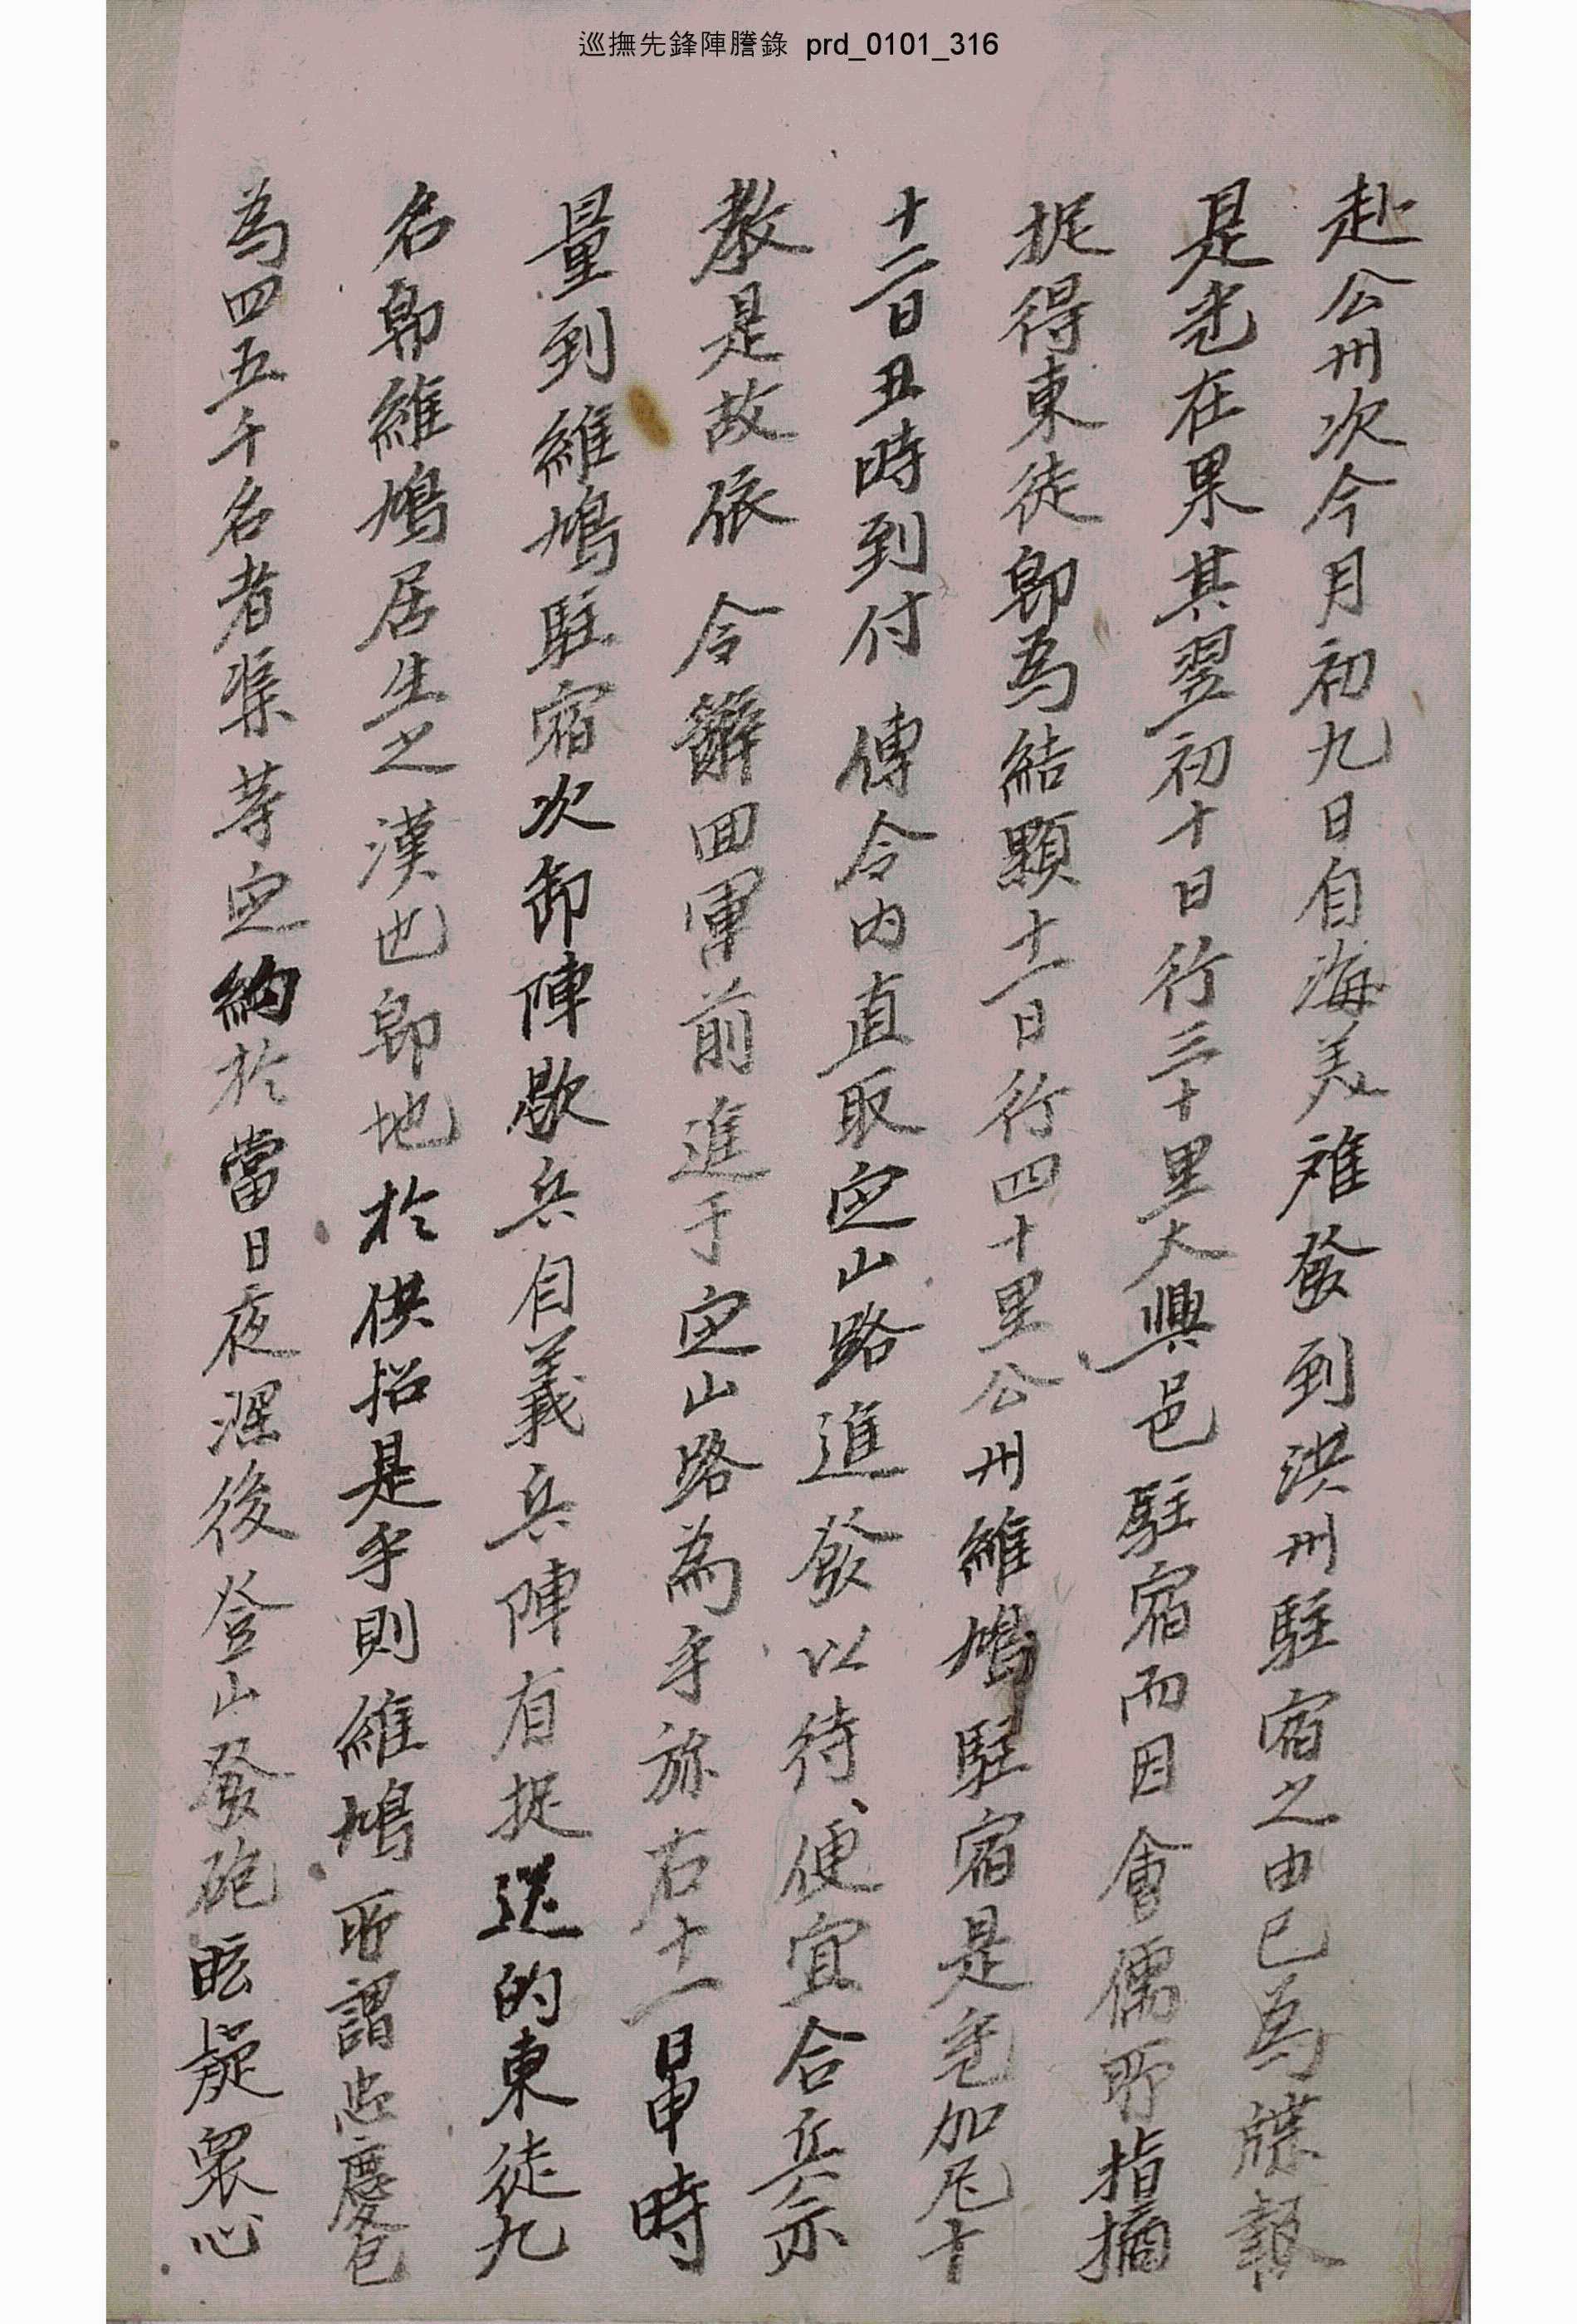 巡撫先鋒陣謄錄 prd_0101_316
赴公州次今月初九日自海美離發到洪州駐宿之由已為牒報
是乎在果其翌初十日行三十里大興邑駐宿而因會儒所指摘
捉得東徒即為結顆十一日行四十里公州維鳩駐宿是乎加尼十
十二日丑時到付 傳令內直取定山路進發以待便宜合兵亦
教是故依 令辭回軍前進于定山路為乎旀右十一日申時
量到維鳩駐宿次卸陣歇兵自義兵陣有捉送的東徒九
名即維鳩居生之漢也即地於供招是乎則維鳩所謂忠慶包
為四五千名者渠等定約於當日夜深後登山發砲眩疑衆心